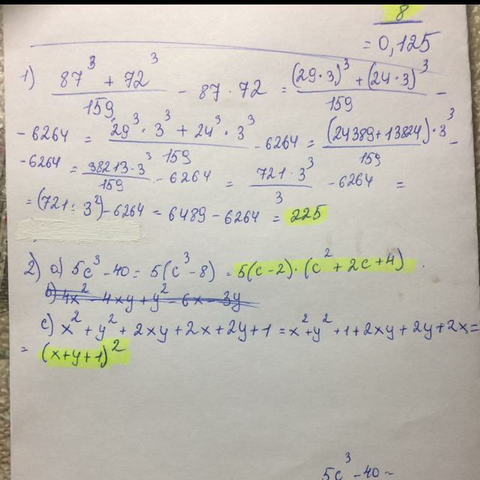 8
= 0,125
1) (87³ + 72³)/159 - 87·72 = ((29·3)³ + (24·3)³)/159 -
- 6264 = (29³·3³ + 24³·3³)/159 - 6264 = ((24389+13824)·3³)/159 -
- 6264 = (38213·3³)/159 - 6264 = (721·3³)/3 - 6264 =
= (721 · 3²) - 6264 = 6489 - 6264 = 225
2) a) 5c³ - 40 = 5(c³ - 8) = 5(c-2)·(c² + 2c + 4).
b) 4x² - 4xy + y² - 6x - 3y
c) x² + y² + 2xy + 2x + 2y + 1 = x² + y² + 1 + 2xy + 2y + 2x =
= (x+y+1)²
5c³ - 40 =